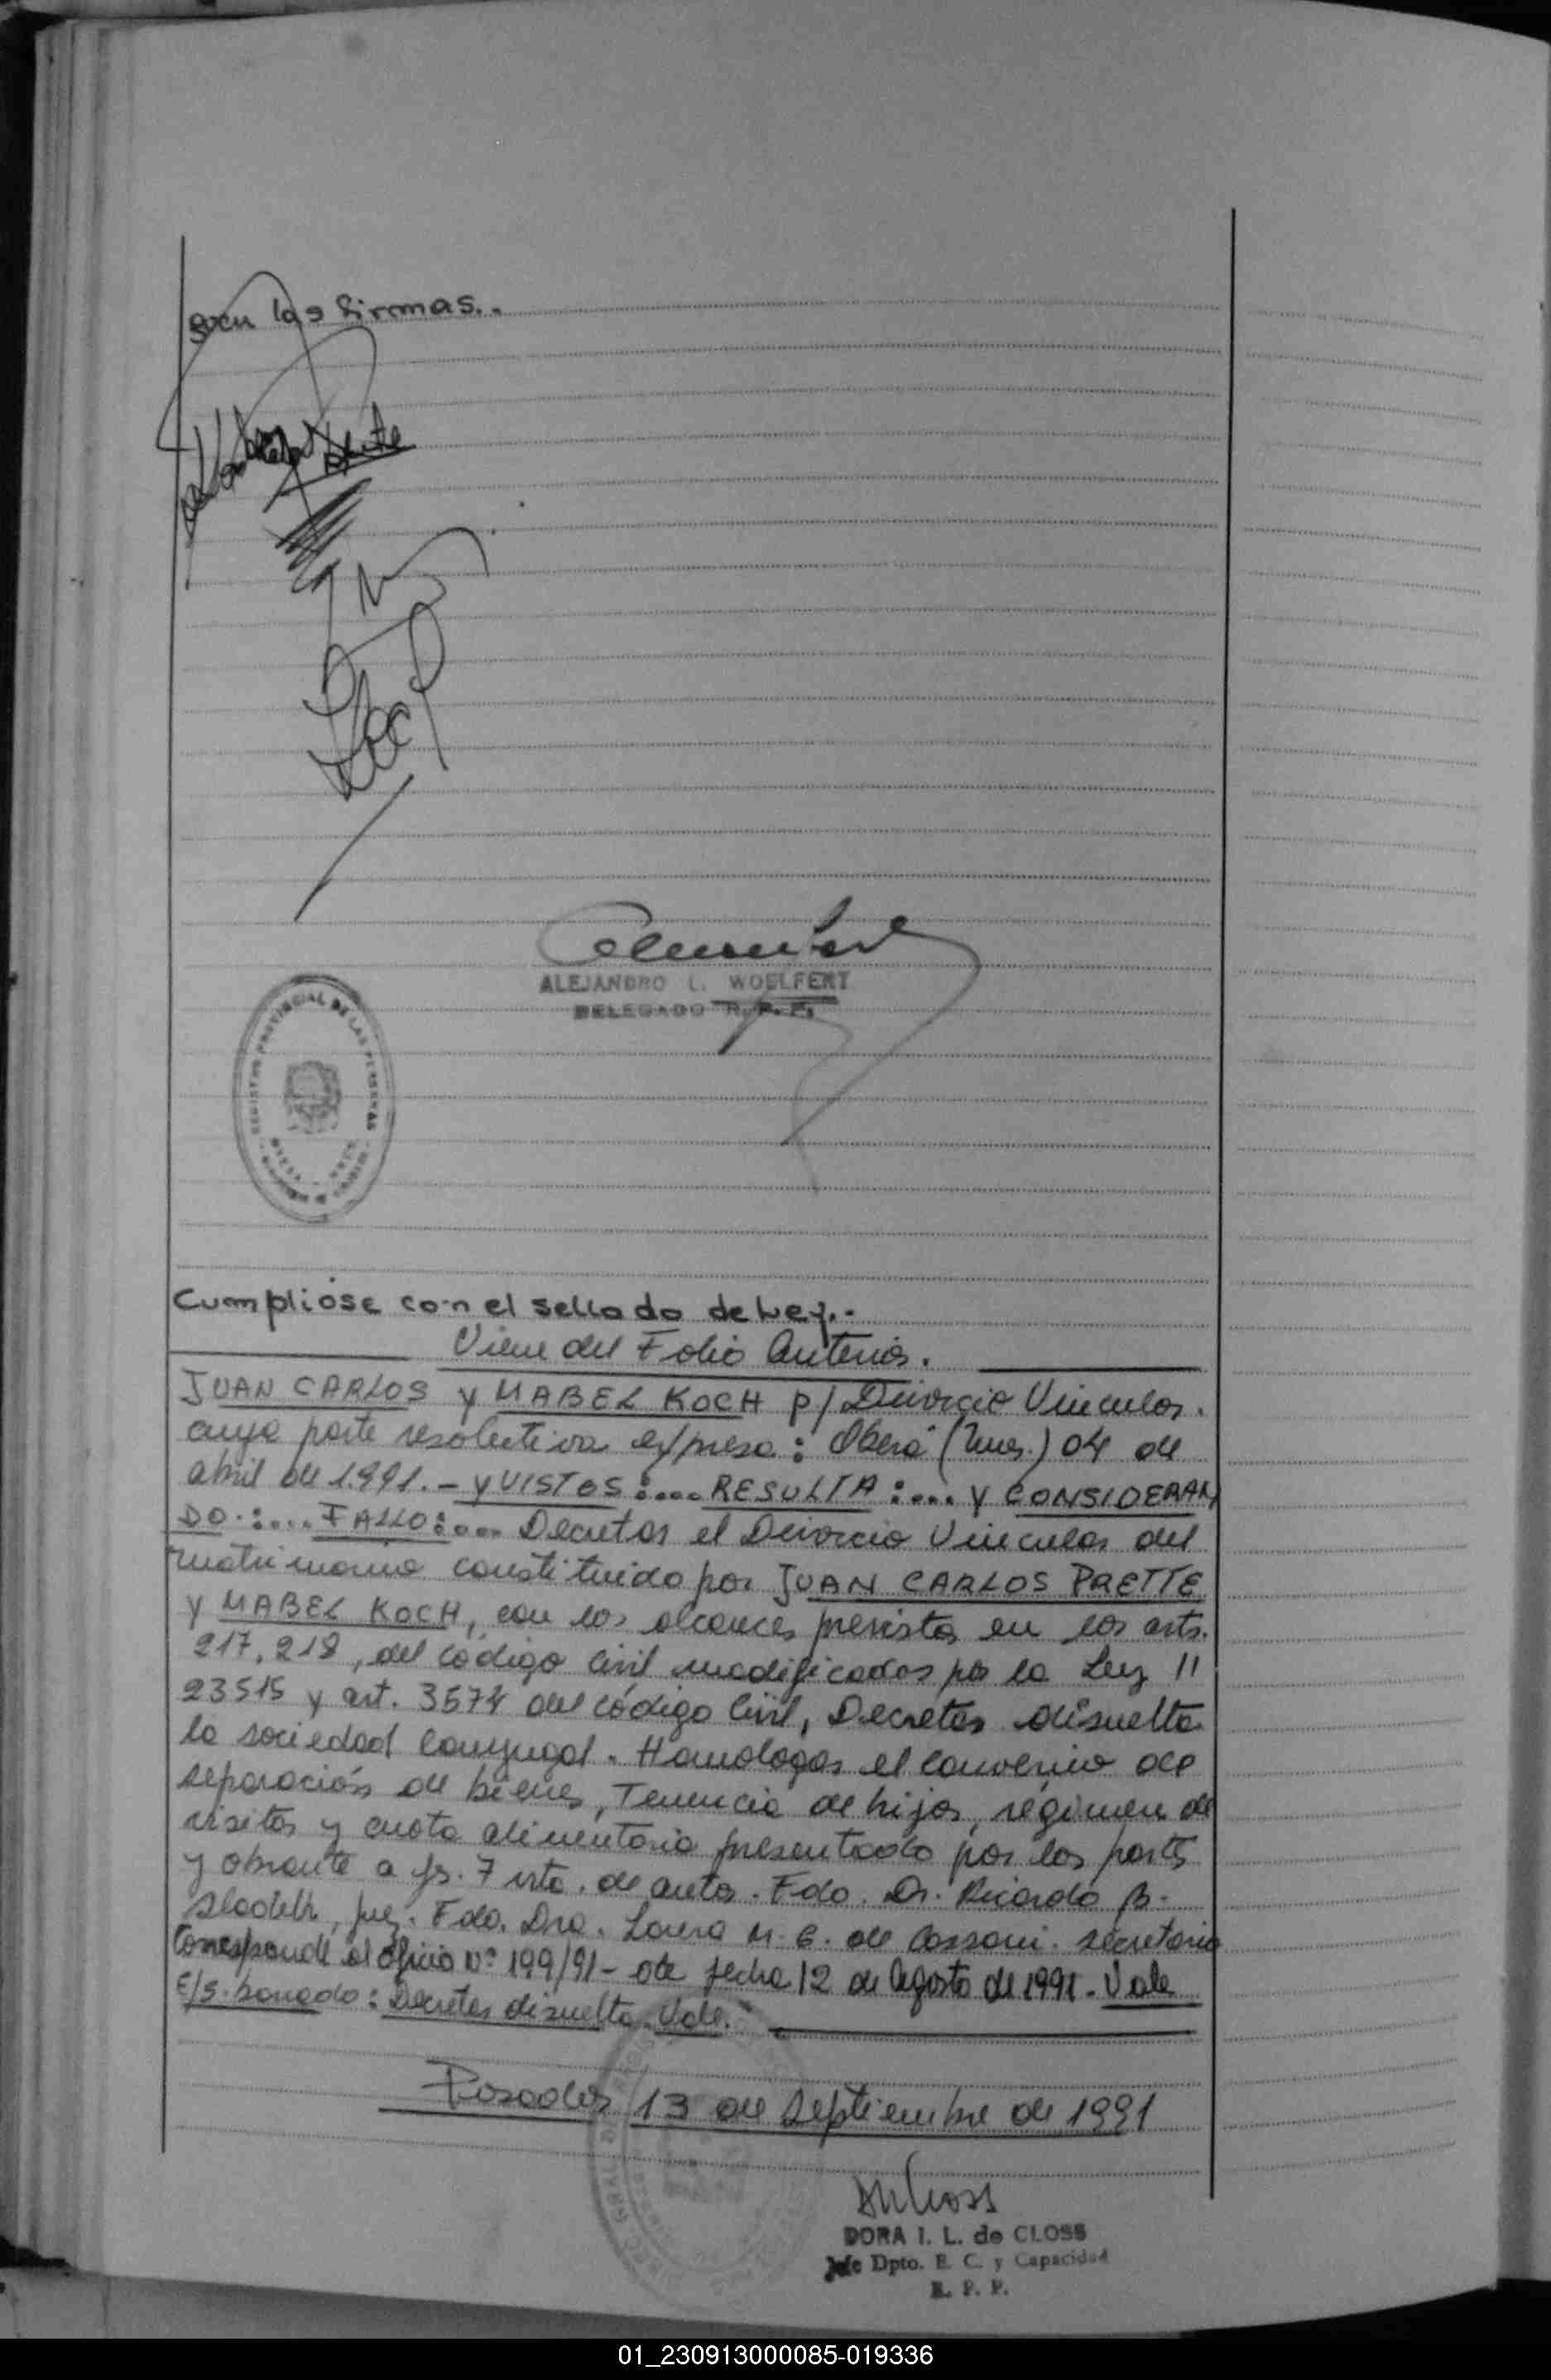 guen las firmas..
ALEJANDRO L. WOELFERT
DELEGADO R. P. P.
REGISTRO PROVINCIAL DE LAS PERSONAS
Cumpliose con el sellado de Ley.-
Viene del Folio Anterior.
JUAN CARLOS y MABEL KOCH p/ Divorcio Vincular.
cuya parte resolutiva expresa: Oberá (Mnes.) 04 de
abril de 1.991.- y VISTOS:.... RESULTA:.... y CONSIDERAN
DO.:.... FALLO:.... Decretar el Divorcio Vincular del
matrimonio constituido por JUAN CARLOS PRETTE
y MABEL KOCH, con los alcances previstos en los arts.
217, 218, del código Civil modificados por la Ley //
23515 y art. 3574 del código Civil, Decretar disuelta
la sociedad Conyugal. Homologar el convenio de
separación de bienes, Tenencia de hijos, régimen de
visitas y cuota alimentaria presentado por las partes
y obrante a fs. 7 vta. de autos. Fdo. Dr. Ricardo B.
juez. Fdo. Dra. Laura M. C. de Cassoni. secretaria
Corresponde al oficio Nº 199/91- de fecha 12 de Agosto de 1991. Vale
E/S. borrado: Decretar disuelta. Vale.
Posadas 13 de septiembre de 1991
DORA I. L. de CLOSS
Jefe Dpto. E. C. y Capacidad
R. P. P.
01_230913000085-019336